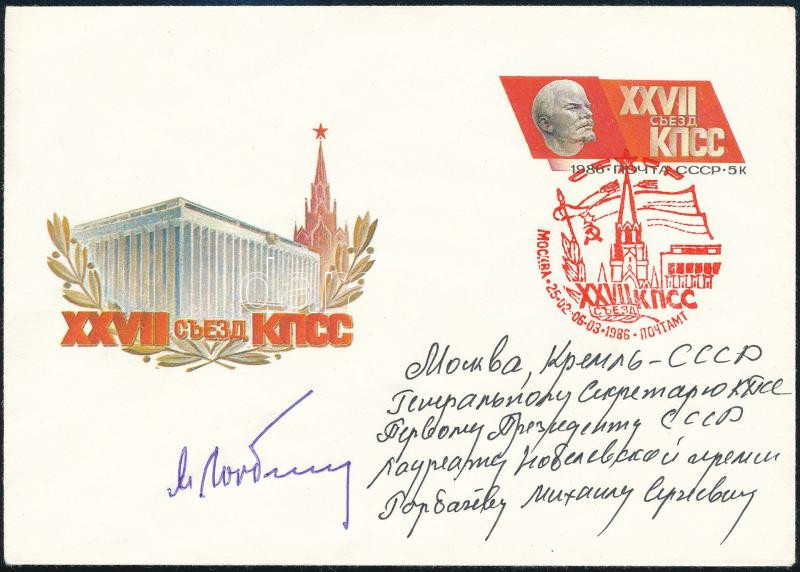 XXVII
СЪЕЗД
КПСС
1986·ПОЧТА СССР·5К
XXVII КПСС
СЪЕЗД
МОСКВА·25·02-06·03·1986·ПОЧТАМТ
XXVII СЪЕЗД КПСС
Москва, Кремль-СССР
Генеральному Секретарю КПСС
Первому Президенту СССР
Лауреату Нобелевской премии
Горбачёву Михаилу Сергеевичу